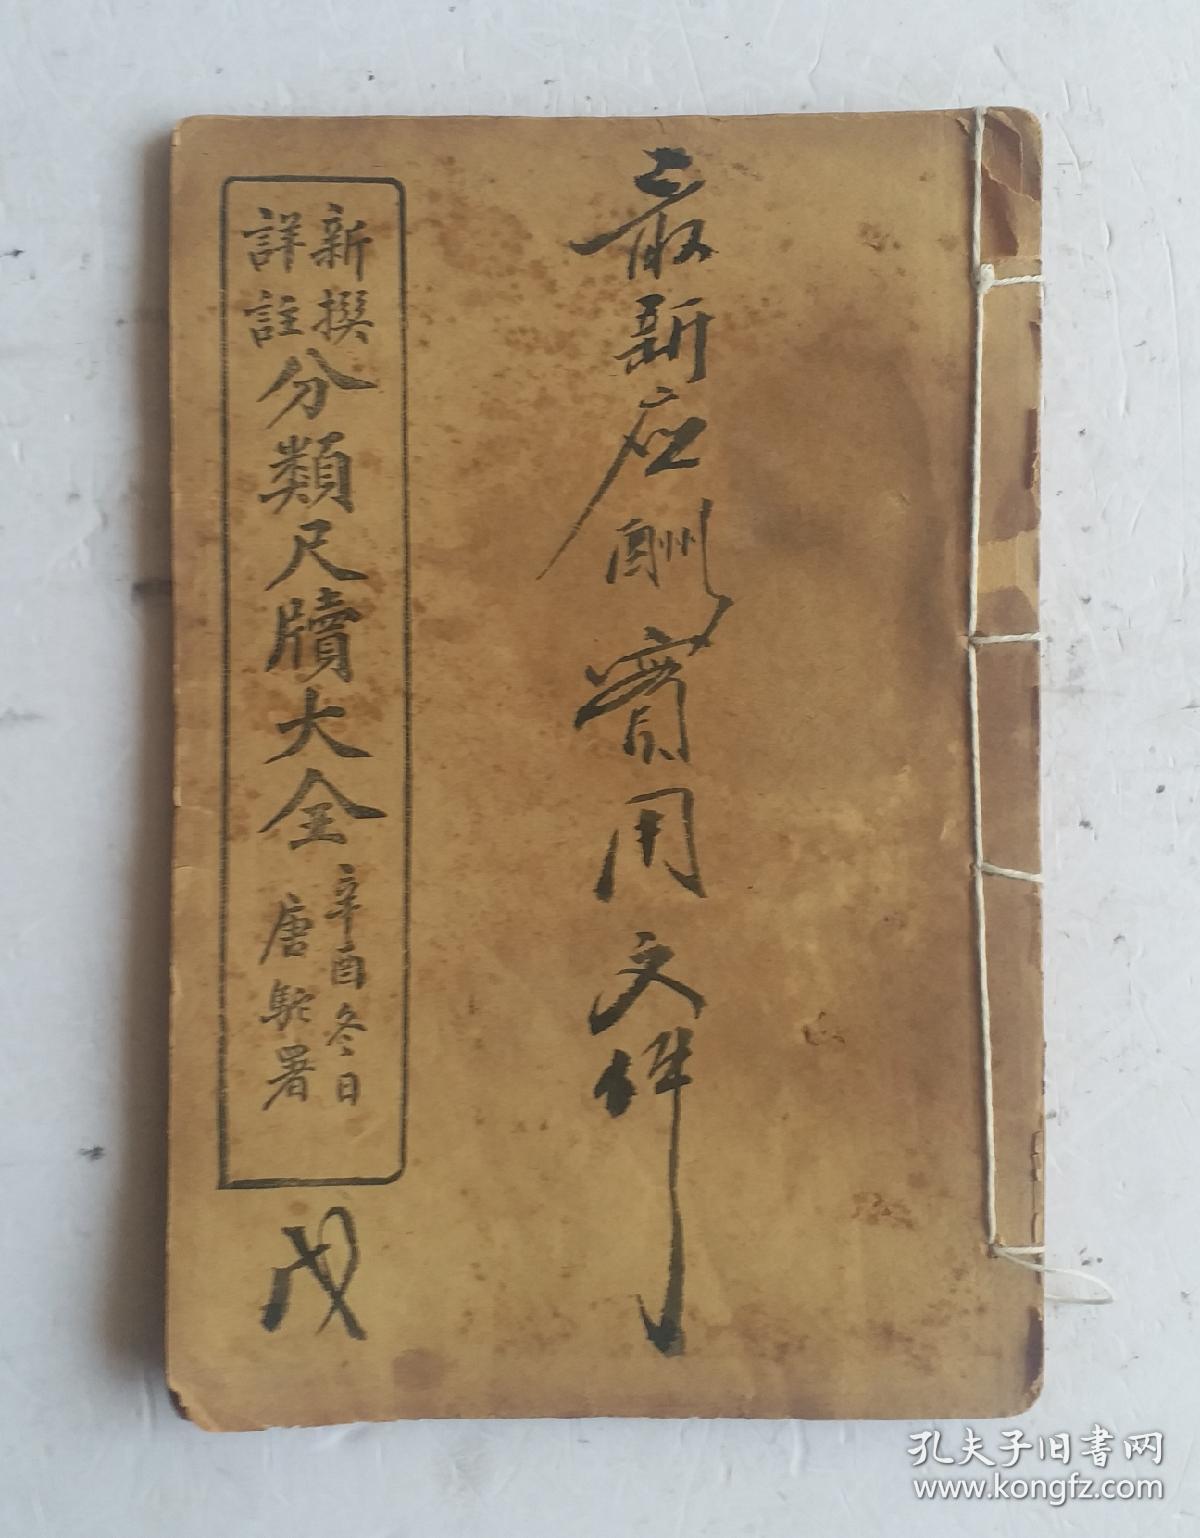 最新应酬實用文件
新撰
詳註
分類尺牘大全
辛酉冬日
唐駝署
戊
孔夫子旧书网
www.kongfz.com